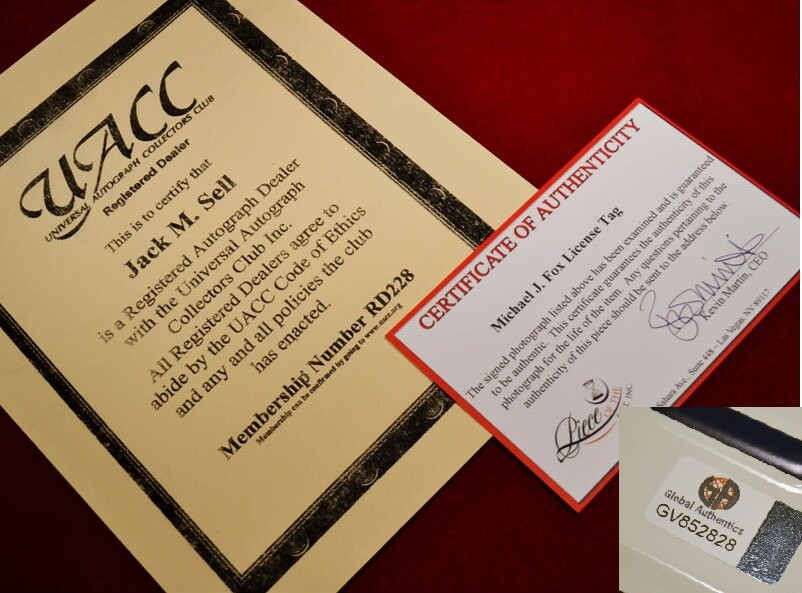 UACC
UNIVERSAL AUTOGRAPH COLLECTORS CLUB
Registered Dealer
This is to certify that
Jack M. Sell
is a Registered Autograph Dealer
with the Universal Autograph
Collectors Club Inc.
All Registered Dealers agree to
abide by the UACC Code of Ethics
and any and all policies the club
has enacted.
Membership Number RD228
Membership can be confirmed by going to www.uacc.org
CERTIFICATE OF AUTHENTICITY
Michael J. Fox License Tag
The signed photograph listed above has been examined and is guaranteed
to be authentic. This certificate guarantees the authenticity of this
photograph for the life of the item. Any questions pertaining to the
authenticity of this piece should be sent to the address below.
Kevin Martin, CEO
Sahara Ave., Suite 448 – Las Vegas, NV 89117
Piece OF THE
INC.
Global Authentics
GV852828